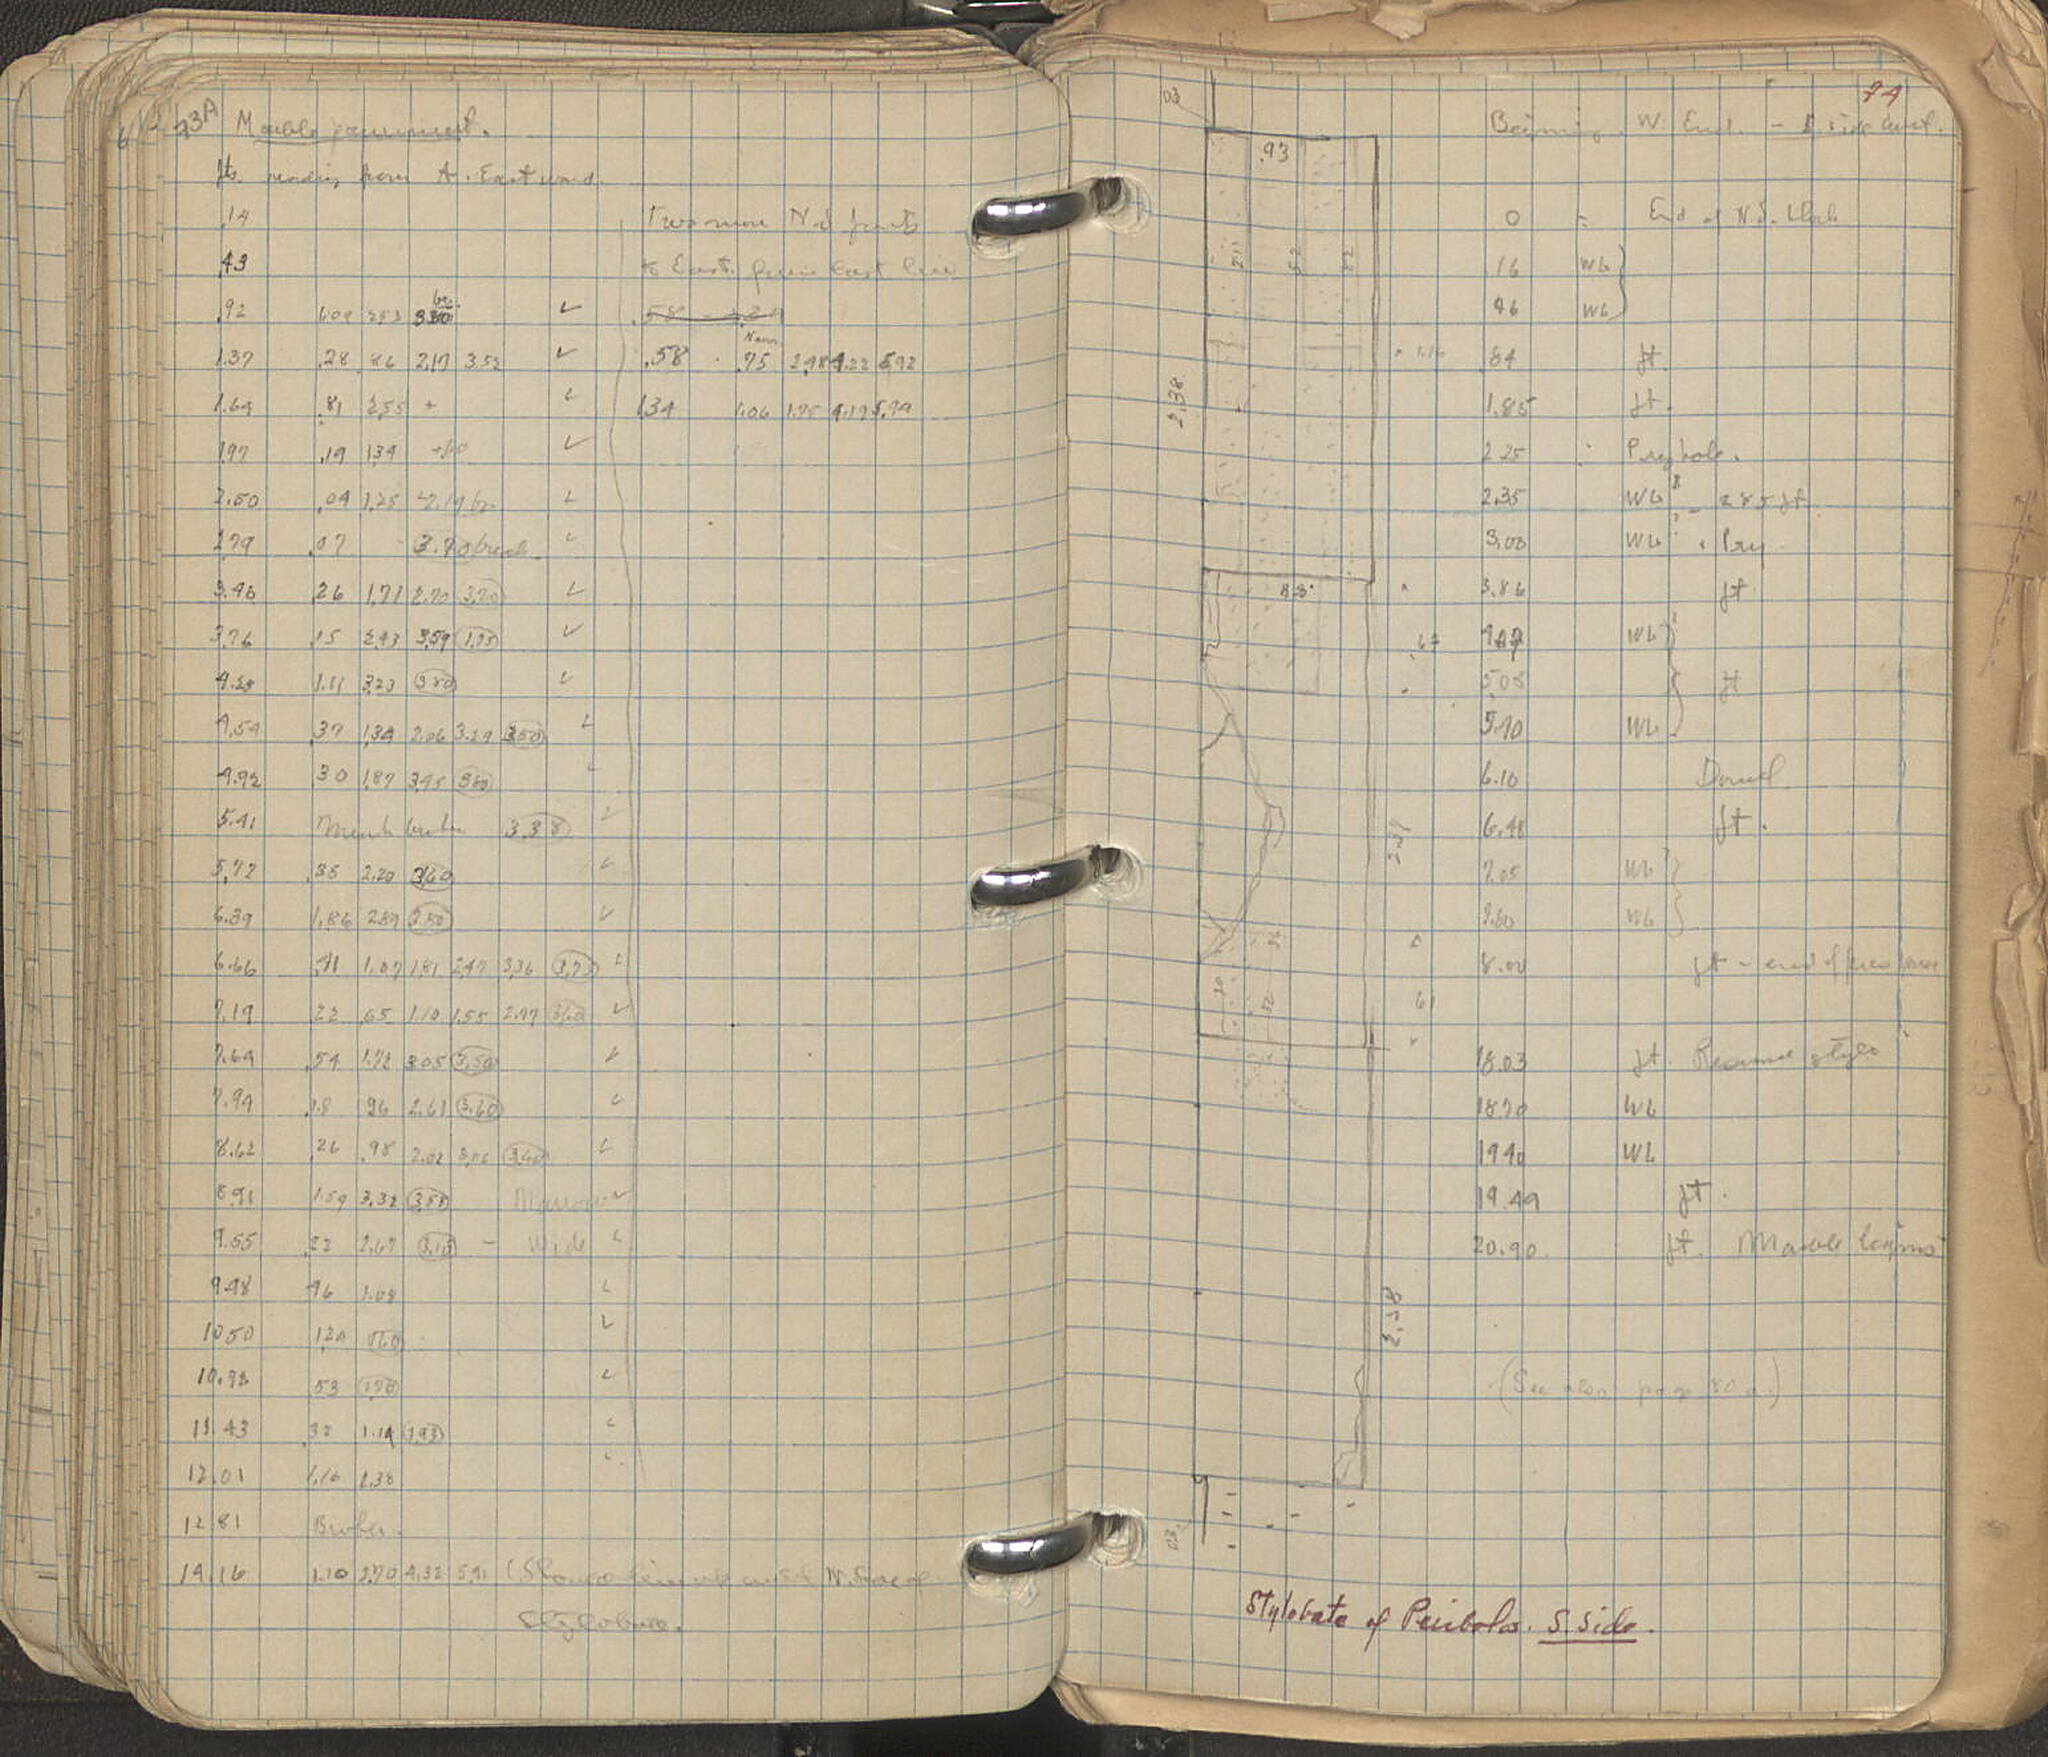 73A Marble pavement.
Jts. reading from A. Eastward.
.14
.43
.92 1.04 2.53 br.
1.37 .28 .86 2.17 3.52 ✓
1.64 .81 2.55 + ✓
1.97 .19 1.34 ✓
2.50 .04 1.25 2.14 br. ✓
2.79 .07 3.90 break. ✓
3.46 26 1.71 2.70 3.70 ✓
3.76 .15 2.43 3.59 ✓
4.28 1.11 3.23 3.80 ✓
4.54 .37 1.34 2.06 3.29 3.50 ✓
4.92 30 1.87 3.45 3.80 ✓
5.41 Much broken 3.38 ✓
5.72 .35 2.20 3.60 ✓
6.39 1.86 2.89 3.50 ✓
6.66 .41 1.07 1.81 2.47 3.36 3.73 ✓
7.19 22 .65 1.10 1.55 2.77 3.60 ✓
7.64 .54 1.72 3.05 3.50 ✓
7.94 1.8 .96 2.61 3.60 ✓
8.62 .26 .98 2.02 3.06 3.60 ✓
8.91 1.59 3.32 3.58 Narrow ✓
9.55 .22 2.67 3.15 - Wide ✓
9.98 46 1.08 ✓
10.50 1.20 ✓
10.98 .53 1.70 ✓
11.43 .32 1.14 1.93 ✓
12.01 1.16 1.38
12.81 Broken.
14.16 1.10 2.70 4.32 5.91 (Should line up with N. face of
Stylobate.
Two more N-S joints
to East from last line
.58 . .75 2.98 4.22 5.92
1.34 1.06 1.75 4.17 5.79
74
Beginning W. End. - S side
0 = End of N.S. block
.16 Wb
.46 Wb
.84 Jt.
1.85 Jt.
2.25 : Pryhole.
2.35 Wb - 2.85 Jt.
3.00 Wb . Pry.
3.86 Jt.
Wb
5.05 Jt
5.70 Wb
6.10 Dowel.
6.48 Jt.
7.05 Wb
7.60 Wb
8.00 Jt - end of
18.03 Jt. Resume stylo
18.70 Wb
19.40 Wb
19.49 Jt.
20.90 Jt. Marble begins
(See also page 80 a.)
03
.93
2.11
.52
.52
2.38
1.16
83
.67
2.37
.61
.52
2.38
.03
Stylobate of Peribolos. S. Side.